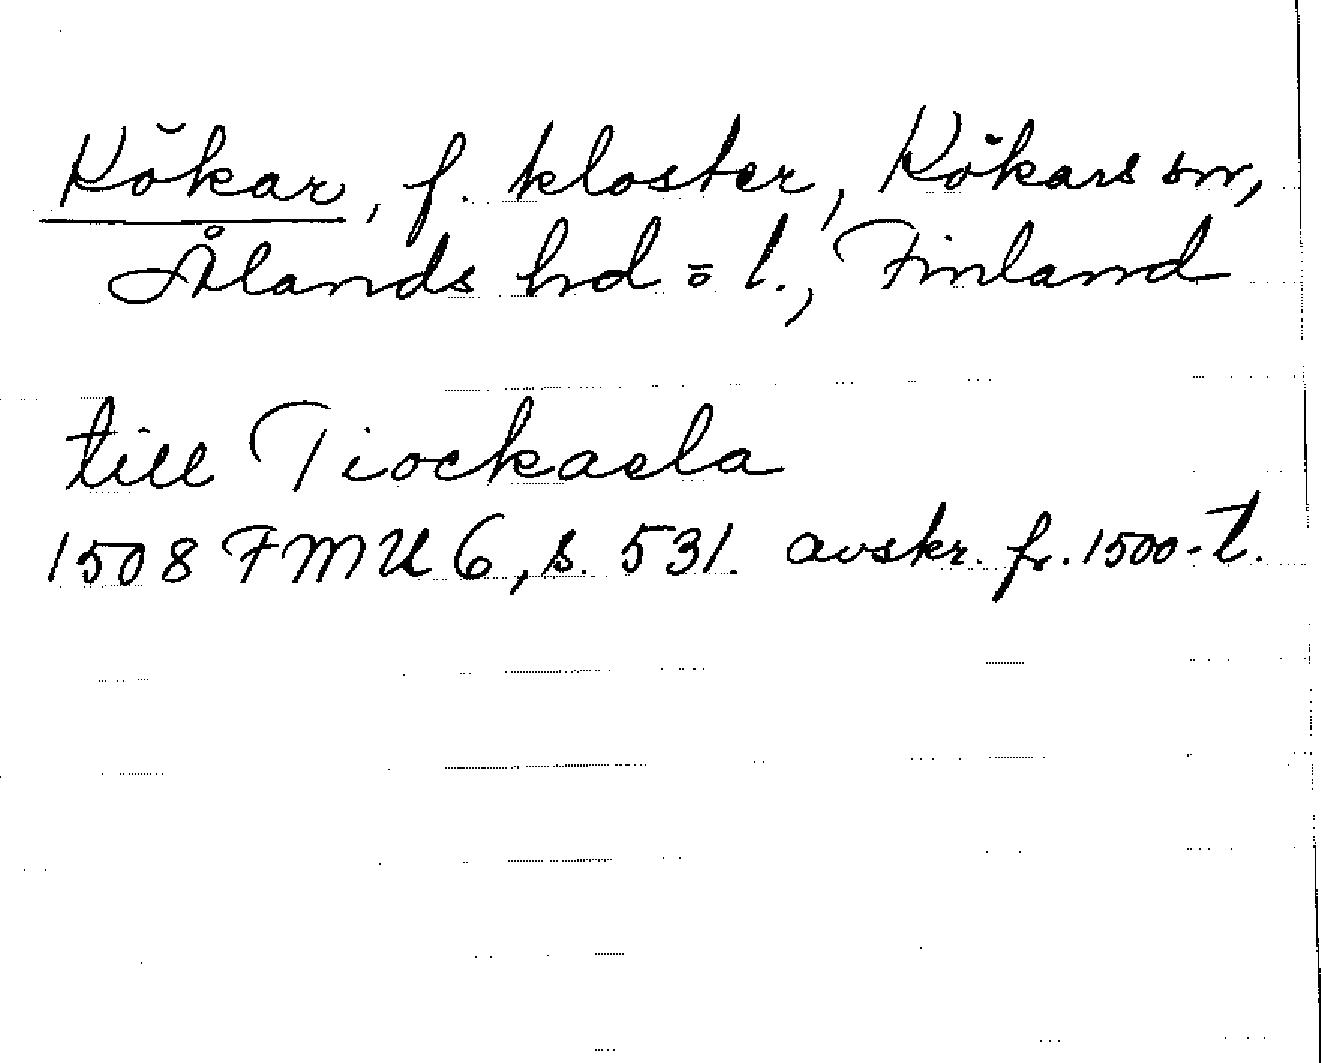 Kökar, f. kloster, Kökars sn,
Ålands hd = l., Finland
till Tiockaela
1508 FMU 6, s. 531. avskr. fr. 1500-t.